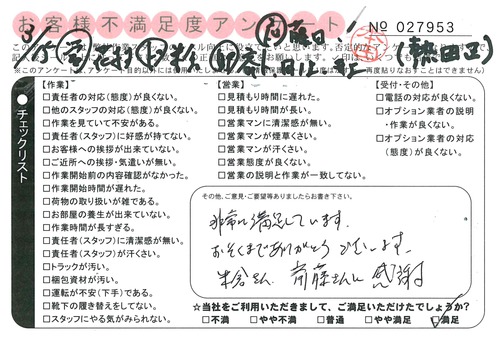 お客様不満足度アンケート
No 027953
(熱田区)
※このアンケート
チェックリスト
【作業】
□責任者の対応(態度)が良くない。
□他のスタッフの対応(態度)が良くない。
□作業を見ていて不安がある。
□責任者(スタッフ)に好感が持てない。
□お客様への挨拶が出来ていない。
□ご近所への挨拶・気遣いが無い。
□作業開始前の内容確認がなかった。
□作業開始時間が遅れた。
□荷物の取り扱いが雑である。
□お部屋の養生が出来ていない。
□作業時間が長すぎる。
□責任者(スタッフ)に清潔感が無い。
□責任者(スタッフ)が汗くさい。
□トラックが汚い。
□梱包資材が汚い。
□運転が不安(下手)である。
□靴下の履き替えをしていない。
□スタッフにやる気がみられない。
【営業】
□見積もり時間に遅れた。
□見積もり時間が長い。
□営業マンに清潔感が無い。
□営業マンが煙草くさい。
□営業マンが汗くさい。
□営業態度が良くない。
□営業の説明と作業が一致してない。
【受付・その他】
□電話の対応が良くない。
□オプション業者の説明
・作業が良くない。
□オプション業者の対応
(態度)が良くない。
その他、ご意見・ご要望等ありましたらお書き下さい。
非常に満足しています。
おそくまでありがとうございます。
斎藤さんに感謝
☆当社をご利用いただきまして、ご満足いただけたでしょうか?
□不満 □やや不満 □普通 □やや満足 ☑満足